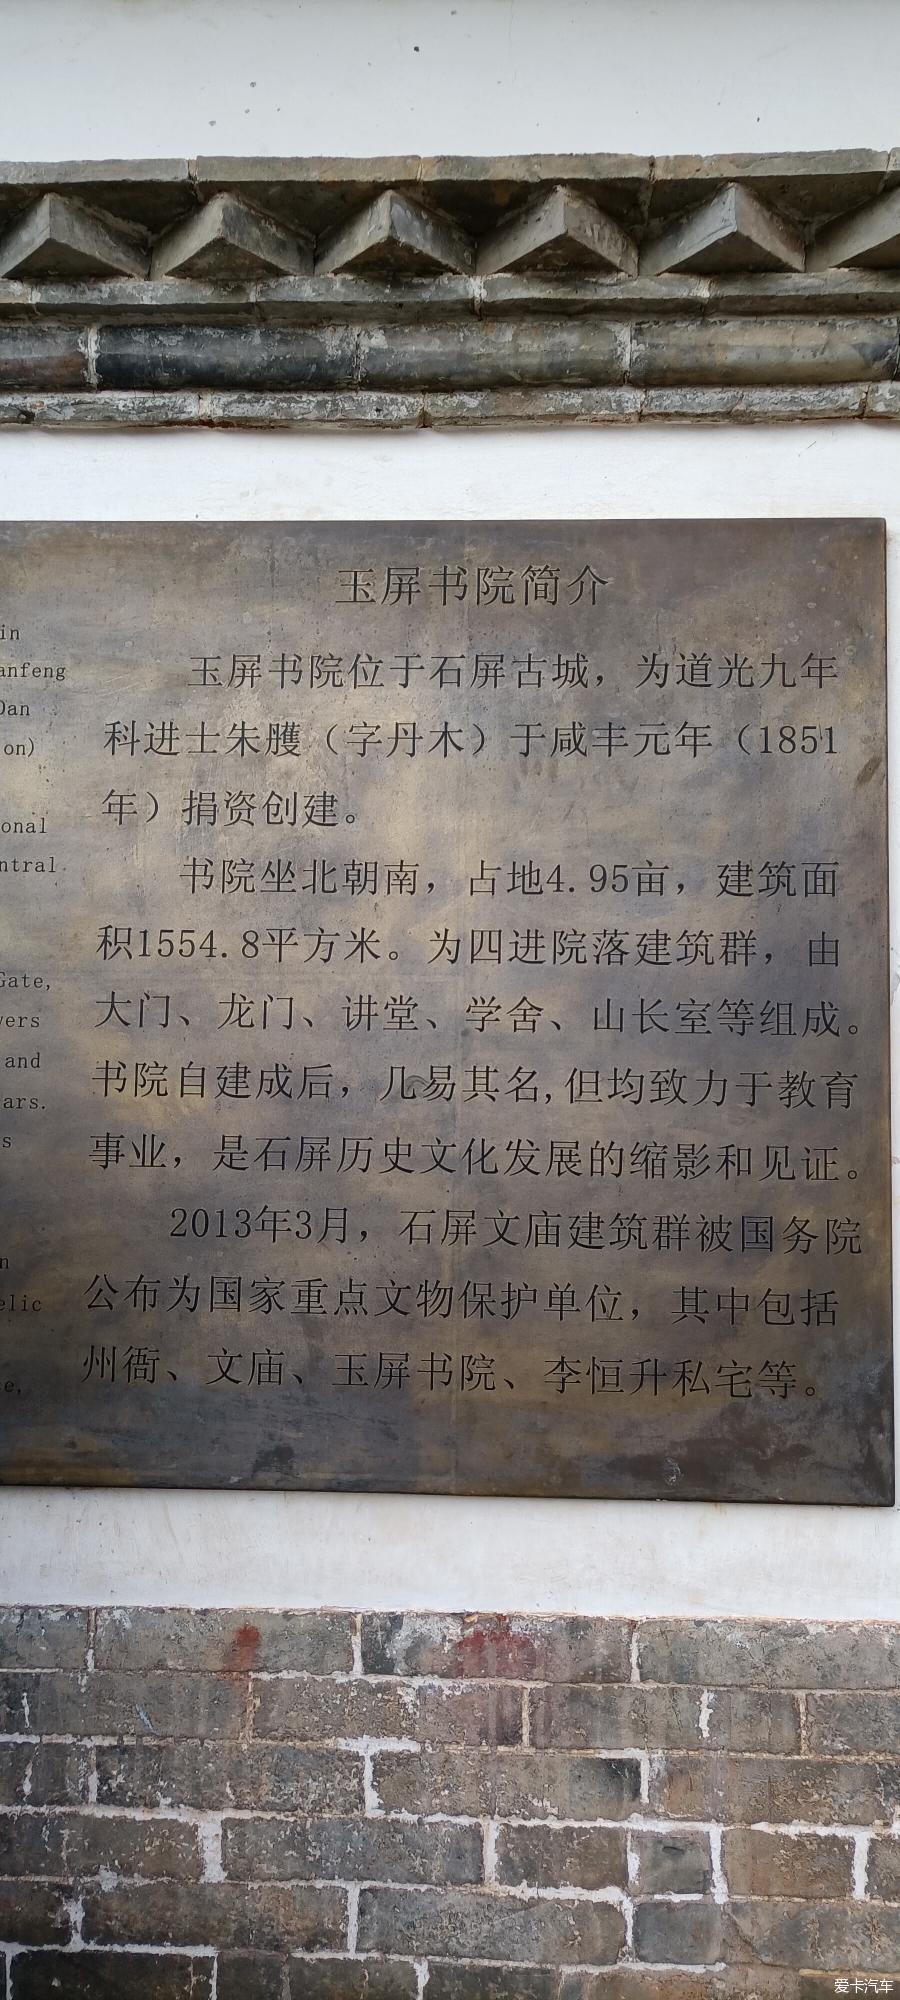 玉屏书院简介
玉屏书院位于石屏古城，为道光九年
科进士朱雘（字丹木）于咸丰元年（1851
年）捐资创建。
书院坐北朝南，占地4.95亩，建筑面
积1554.8平方米。为四进院落建筑群，由
大门、龙门、讲堂、学舍、山长室等组成。
书院自建成后，几易其名,但均致力于教育
事业，是石屏历史文化发展的缩影和见证。
2013年3月，石屏文庙建筑群被国务院
公布为国家重点文物保护单位，其中包括
州衙、文庙、玉屏书院、李恒升私宅等。
in
anfeng
Dan
on)
onal
ntral
Gate,
wers
and
ars.
s
n
elic
e,
爱卡汽车